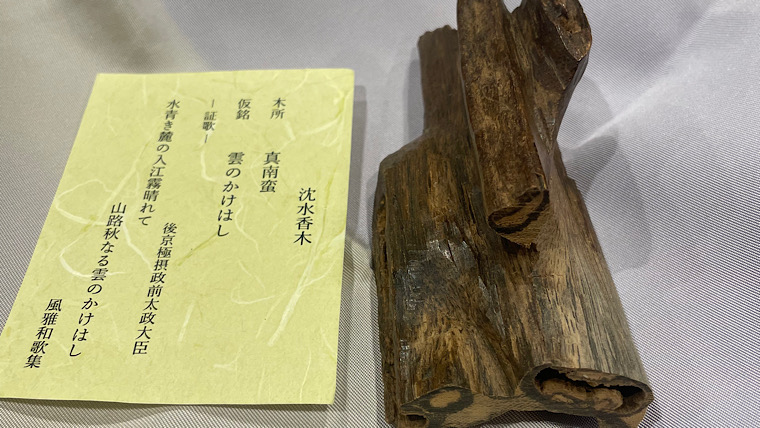 沈水香木
木所　真南蛮
仮銘　雲のかけはし
ー証歌ー
後京極摂政前太政大臣
水青き麓の入江霧晴れて
山路秋なる雲のかけはし
風雅和歌集